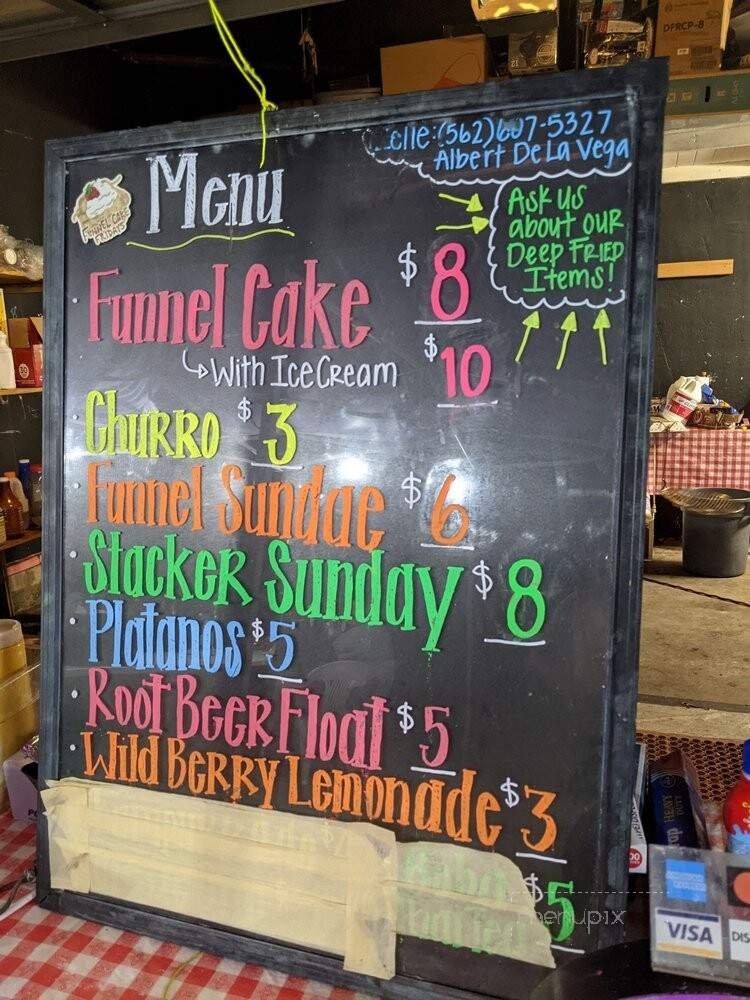 (562)607-5327
Albert De La Vega
FUNNEL CAKE
FRIDAYS
Menu
Ask us
about our
Deep Fried
Items!
Funnel Cake $8
With Ice Cream $10
Churro $3
Funnel Sundae $6
Stacker Sunday $8
Platanos $5
Root Beer Float $5
Wild Berry Lemonade $3
$5
menupix
VISA
DIS
DFRCP-8